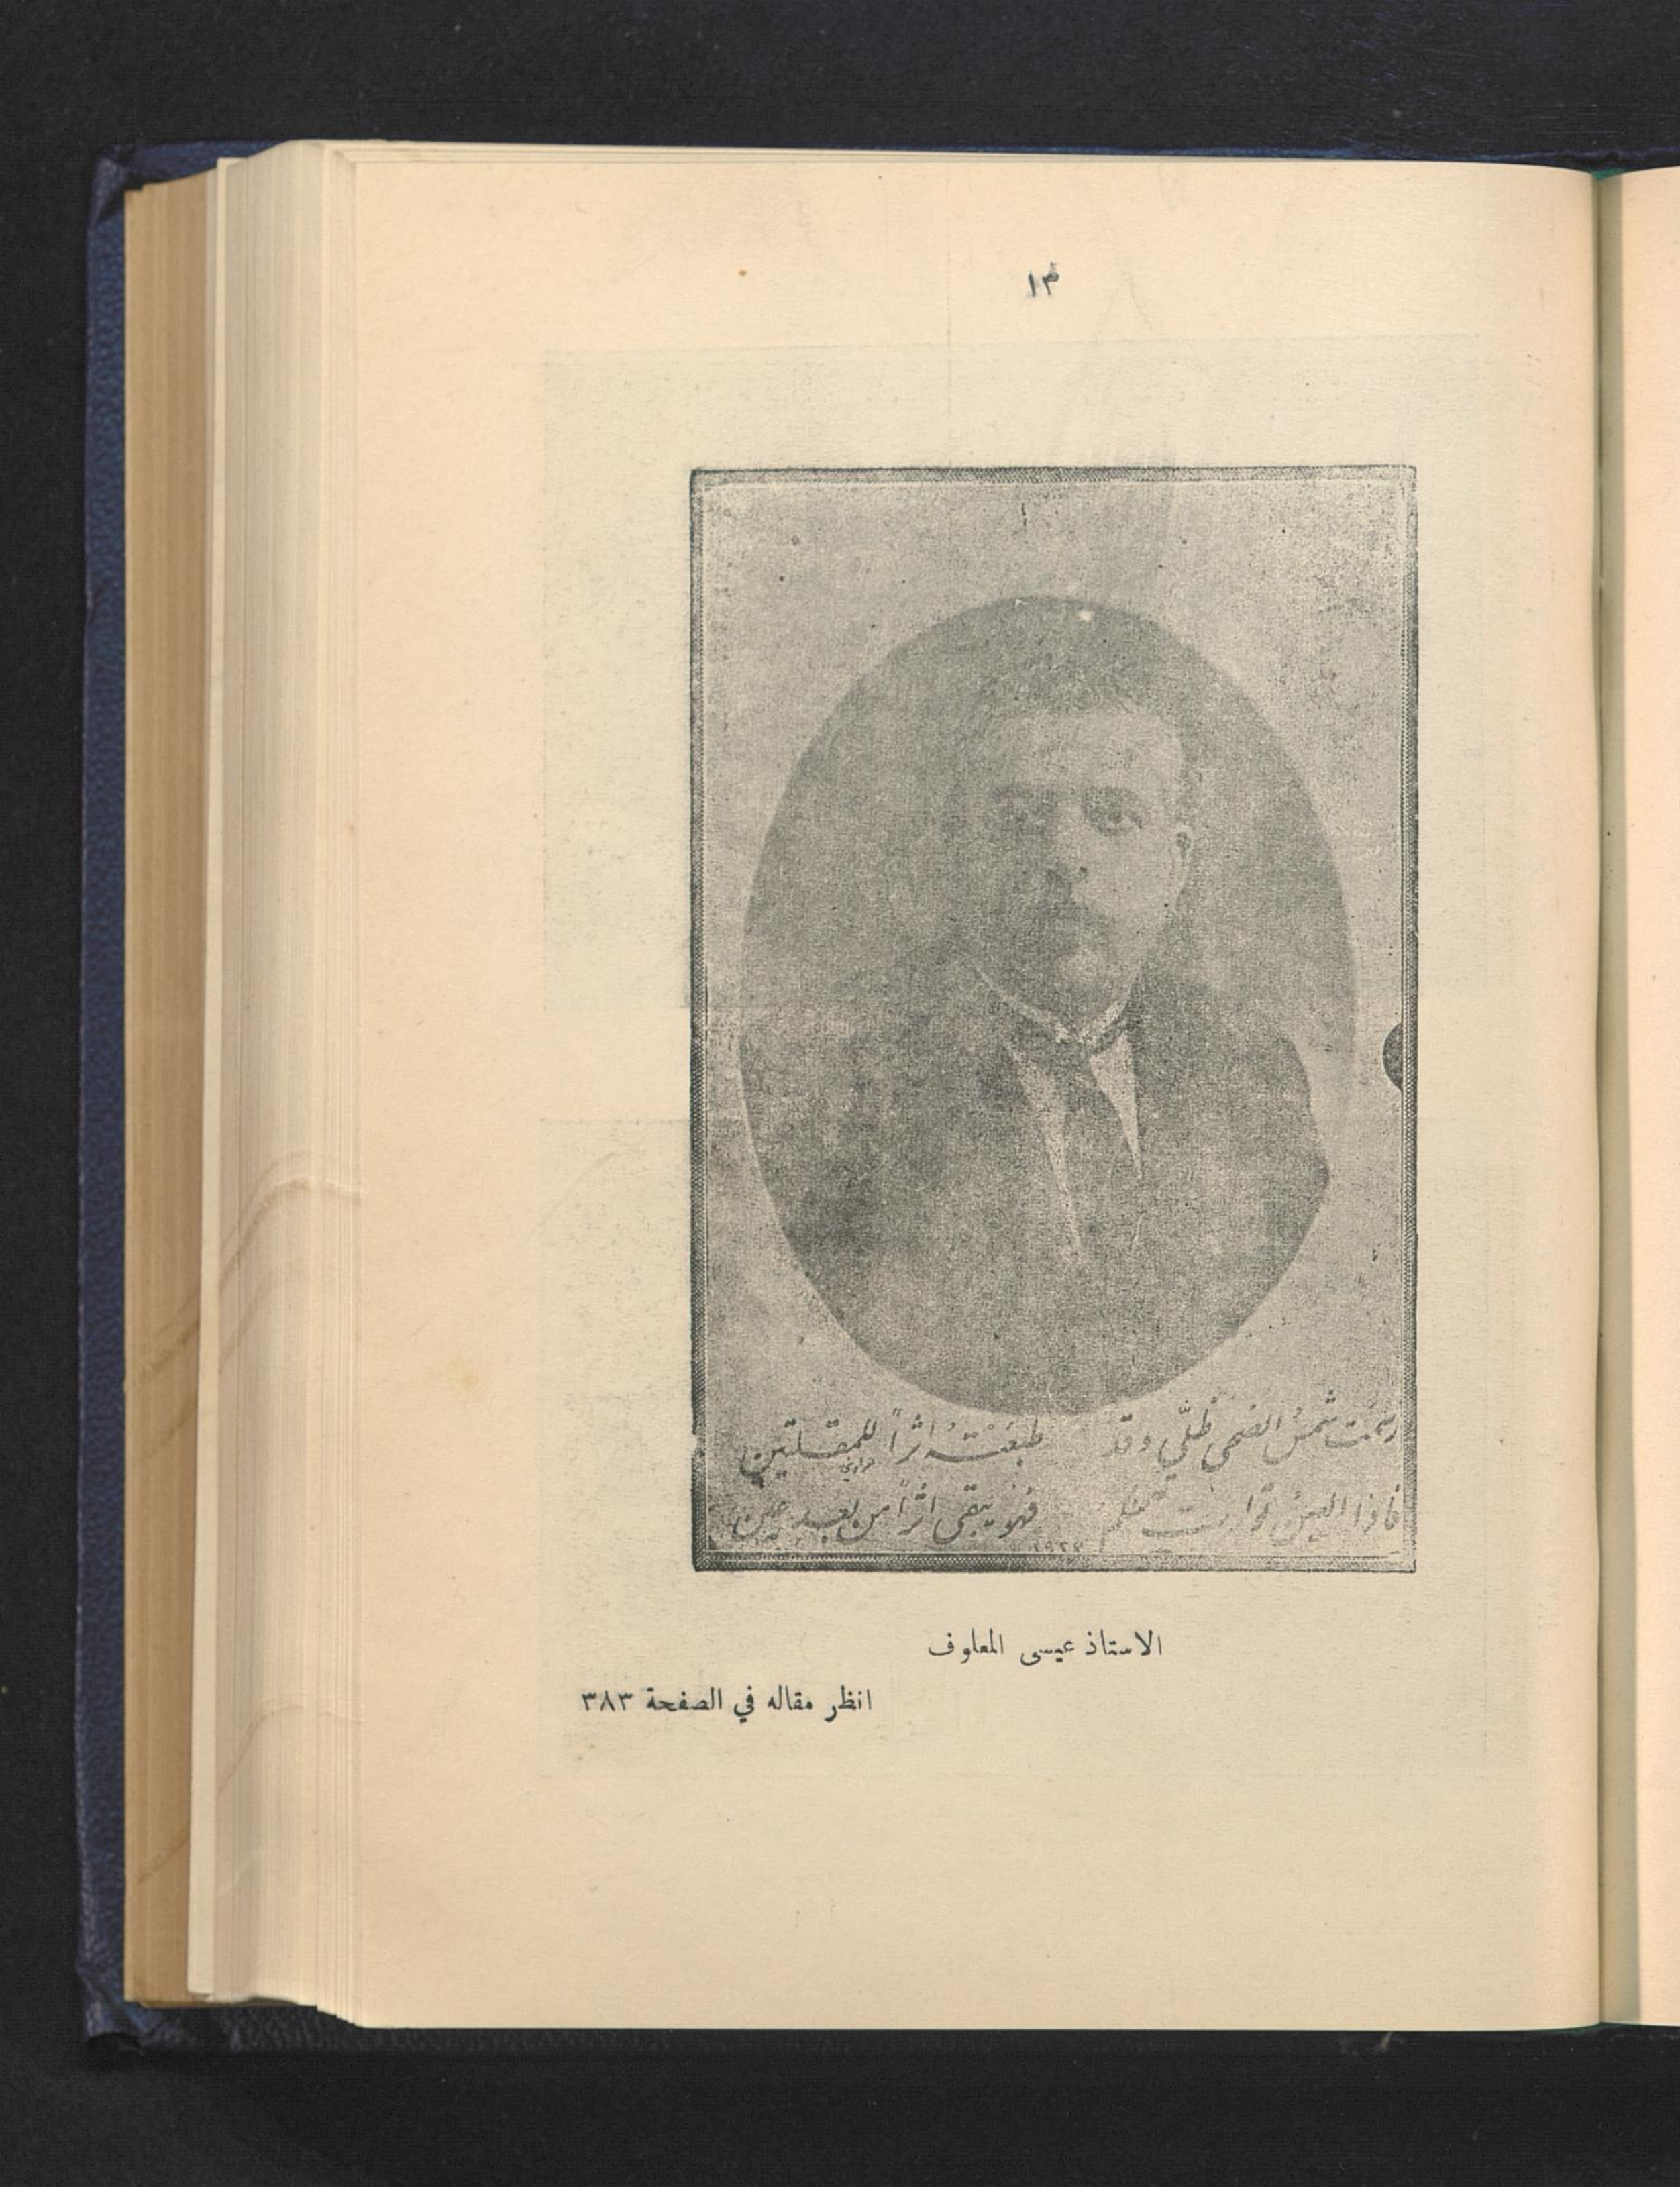 ١٣
رسمت شمسُ الضحى ظلّي وقد طبعَتْهُ اثراً للمقلتين
فاذا العينُ توارت فهو يبقى اثراً من بعد عين
الاستاذ عيسى المعلوف
انظر مقاله في الصفحة ٣٨٣